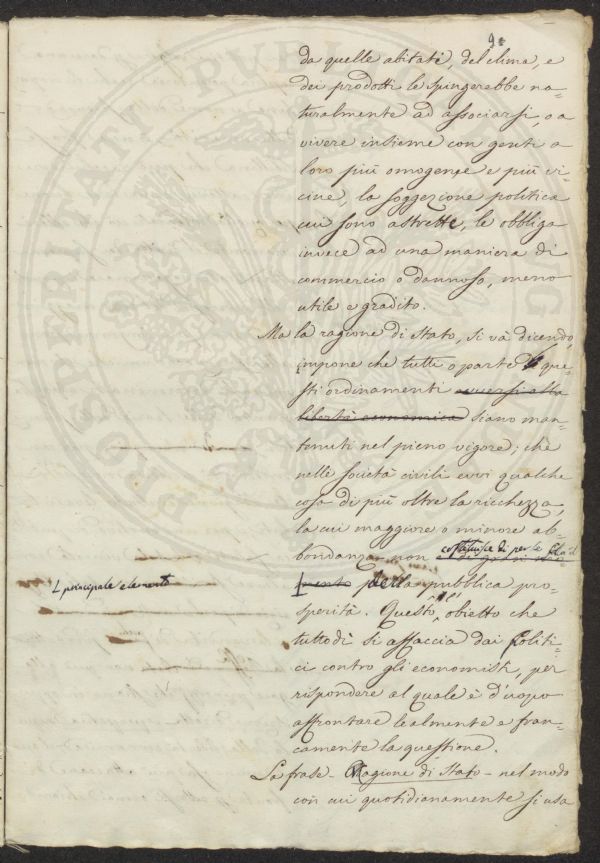 9
da quelle abitate, del clima, e
dei prodotti le spingerebbe na-
turalmente ad associarsi, o a
vivere insieme con genti a
loro più omogenee e più vi-
cine, la soggezione politica
cui sono astrette, le obbliga
invece ad una maniera di
commercio o dannoso, meno
utile e gradito.
Ma la ragione di Stato, si và dicendo,
impone che tutti o parte di que-
sti ordinamenti avversi alla
libertà economica siano man-
tenuti nel pieno vigore; chè
nelle società civili evvi qualche
cosa di più oltre la ricchezza,
la cui maggiore o minore ab-
bondanza non costituisce di per se solo il
principale elemento
della pubblica pro-
sperità. Questo è l'obietto che
tuttodì si affaccia dai Politi-
ci contro gli economisti, per
rispondere al quale è d'uopo
affrontare lealmente e fran-
camente la questione.
La frase - Ragione di Stato - nel modo
con cui quotidianamente si usa
POSTERITATI PUBL